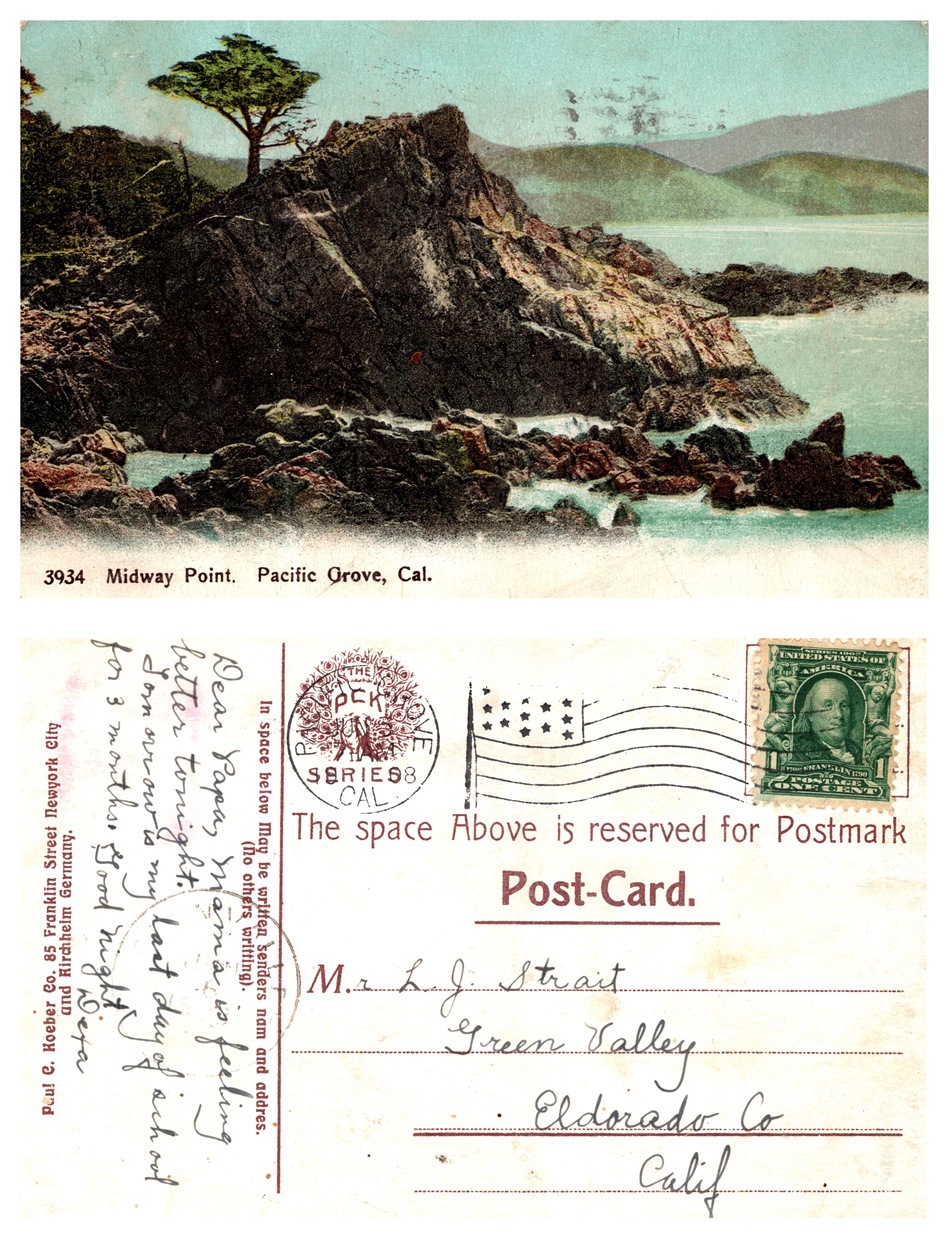 3934 Midway Point. Pacific Grove, Cal.
Dear Papa, Mama is feeling
better tonight.
Tomorrow is my last day of school
for 3 months. Good Night
Dexa
In space below May be written senders nam and addres.
(No others writting).
Paul C. Koeber Co. 85 Franklin Street Newyork City
and Kirchheim Germany.
THE
PCK
SERIES
GROVE
8
CAL.
SERIES 1902
UNITED STATES OF
AMERICA
1 FRANKLIN 1
POSTAGE
ONE CENT
The space Above is reserved for Postmark
Post-Card.
M.r L. J. Strait
Green Valley
Eldorado Co
Calif